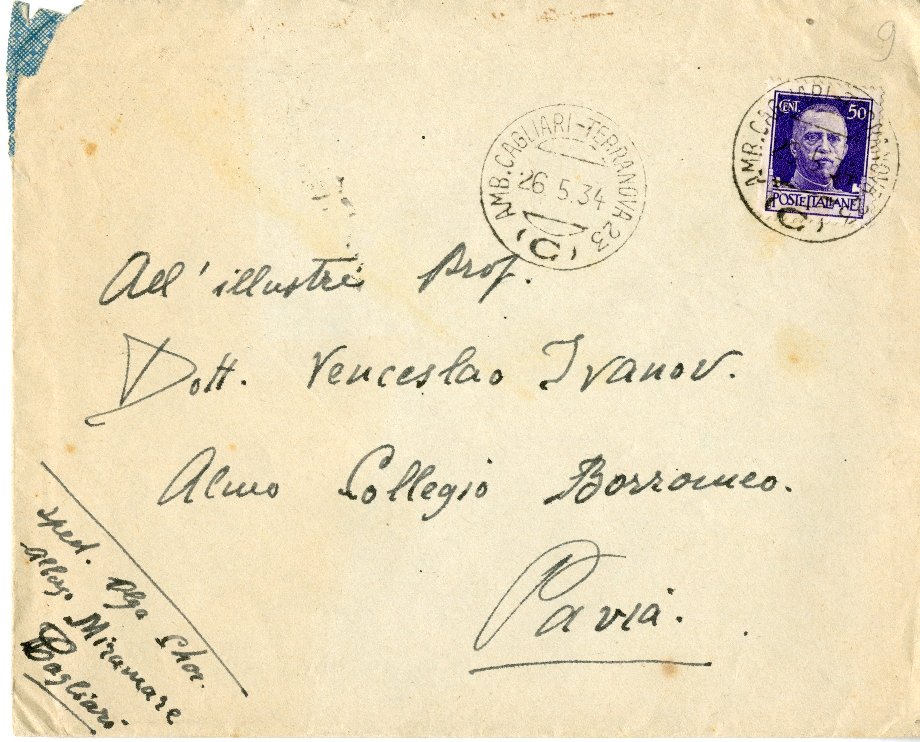 9
AMB. CAGLIARI-TERRANOVA 23
26 5.34
(C)
CENT. 50
POSTE ITALIANE
All' illustre Prof.
Dott. Venceslao Ivanov.
Almo Collegio Borromeo.
Pavia.
sped. Olga Chor.
albergo Miramare
Cagliari.